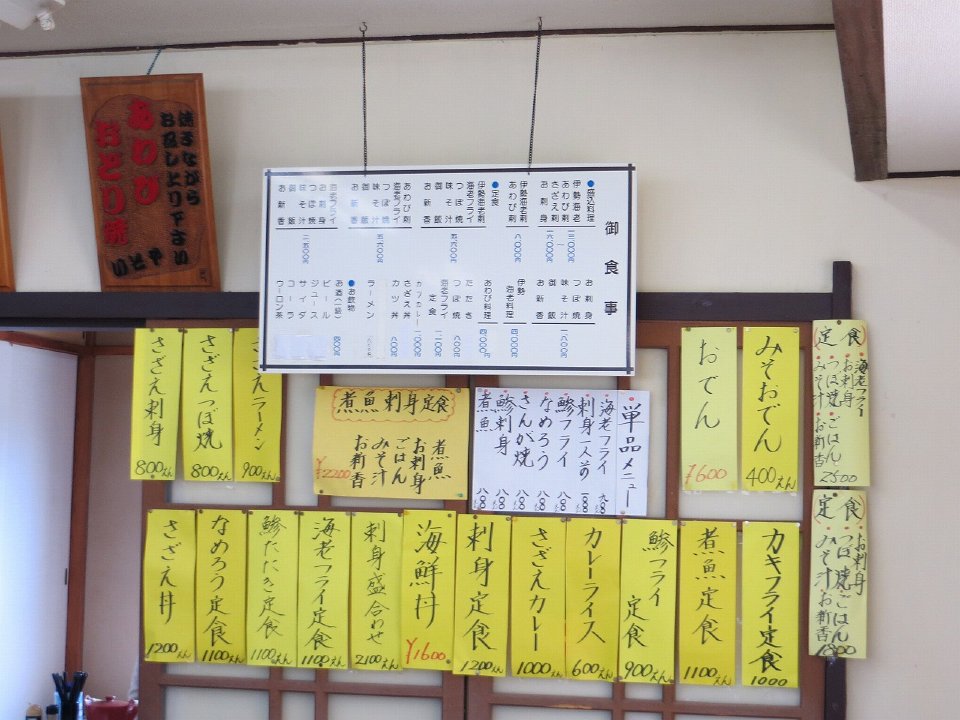 焼きながら
お召し上り下さい
あわび
おどり焼
いそや
御食事
●盛込料理
伊勢海老
あわび刺
さざえ刺
お刺身
伊勢海老刺
あわび刺
●定食
伊勢海老刺
海老フライ
つぼ焼
味そ汁
御飯
お新香
あわび刺
海老フライ
つぼ焼
味そ汁
御飯
お新香
海老フライ
お刺身
つぼ焼
味そ汁
御飯
お新香
お刺身
つぼ焼
味そ汁
御飯
お新香
伊勢
海老料理
あわび料理
たたき
つぼ焼
海老フライ
定食
カツカレー
さざえ丼
カツ丼
ラーメン
●お飲物
お酒(一級)
ビール
ジュース
サイダ
コーラ
ウーロン茶
さざえラーメン
900えん
さざえつぼ焼
800えん
さざえ刺身
800えん
煮魚刺身定食
煮魚
お刺身
ごはん
みそ汁
お新香
¥2200
単品メニュー
海老フライ
刺身一人前
鯵フライ
なめろう
さんが焼
鯵刺身
煮魚
みそおでん
400えん
おでん
¥600
(定食)
海老フライ
お刺身
つぼ焼
みそ汁
ごはん
お新香
2500
(定食)
お刺身
つぼ焼
みそ汁
ごはん
お新香
1800
カキフライ定食
1000
煮魚定食
1100えん
鯵フライ定食
900えん
カレーライス
600えん
さざえカレー
1000えん
刺身定食
1200えん
海鮮丼
¥1600
刺身盛合わせ
2100えん
海老フライ定食
1100えん
鯵たたき定食
1100えん
なめろう定食
1100えん
さざえ丼
1200えん